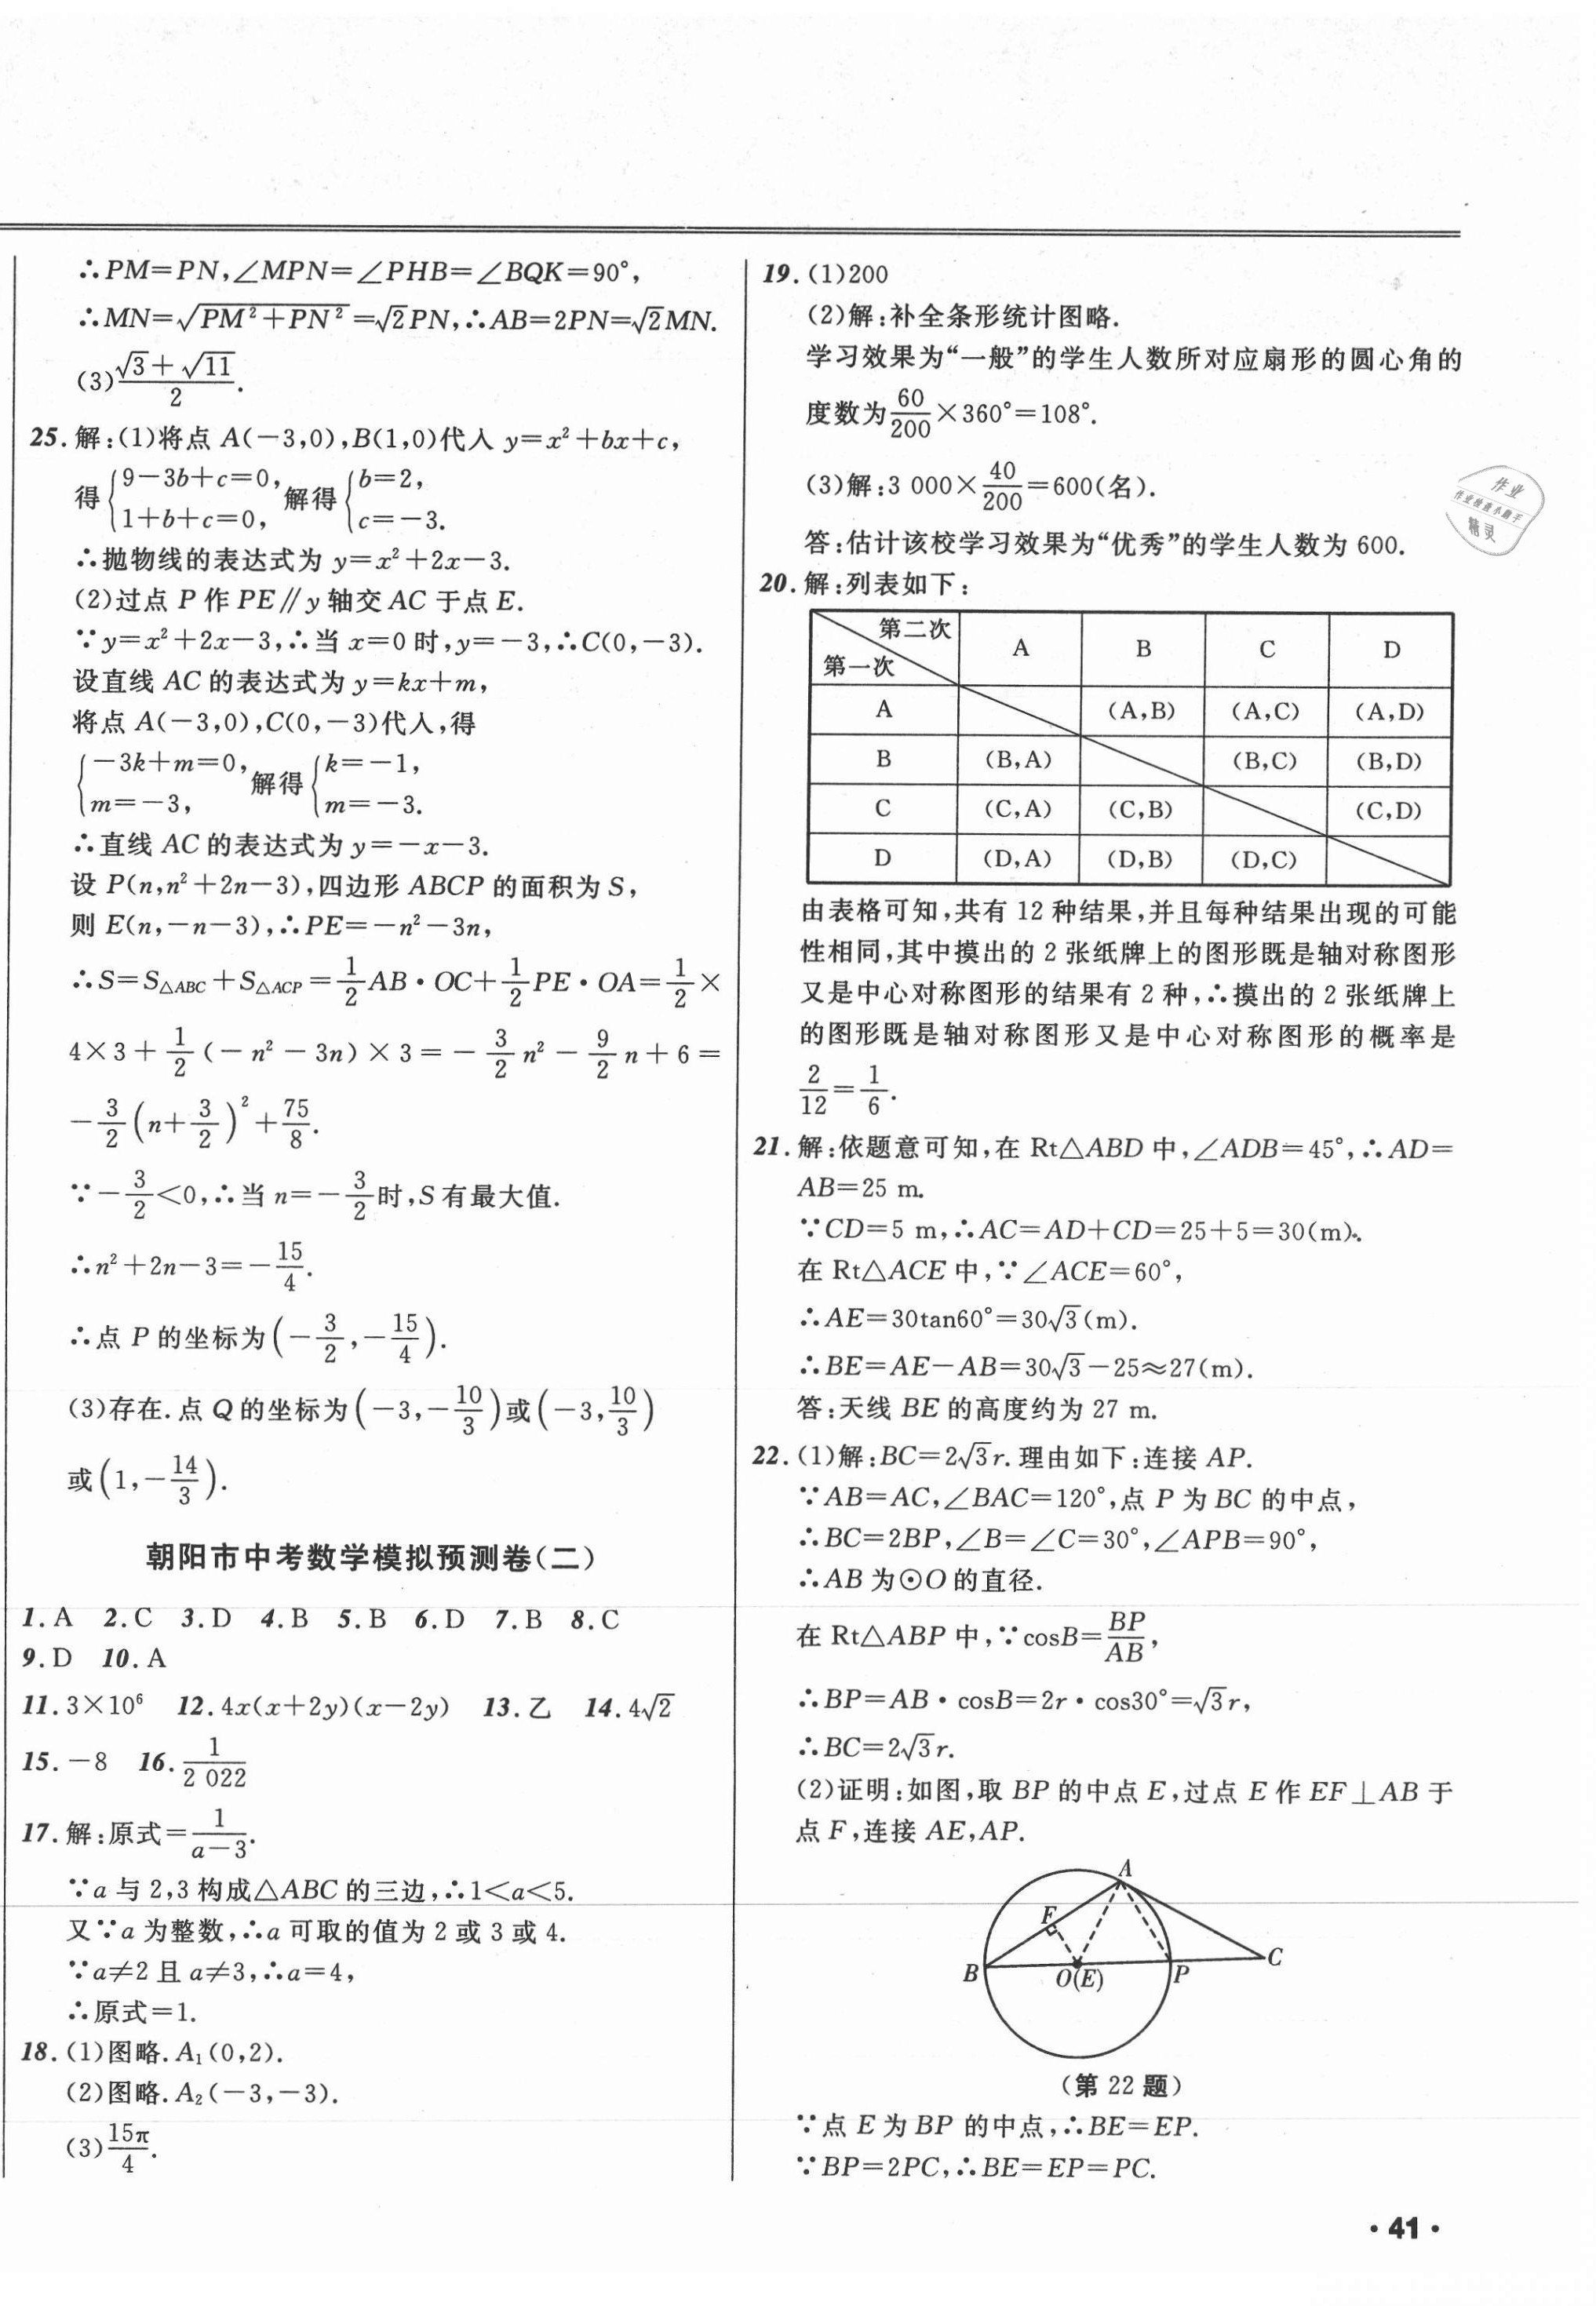 ∴PM=PN,∠MPN=∠PHB=∠BQK=90°,
∴MN=√(PM²+PN²)=√2PN,∴AB=2PN=√2MN.
(3)(√3+√11)/2.
25.解:(1)将点 A(-3,0),B(1,0)代入 y=x²+bx+c,
得{9-3b+c=0, 1+b+c=0, 解得{b=2, c=-3.
∴抛物线的表达式为 y=x²+2x-3.
(2)过点 P 作 PE∥y 轴交 AC 于点 E.
∵y=x²+2x-3,∴当 x=0 时,y=-3,∴C(0,-3).
设直线 AC 的表达式为 y=kx+m,
将点 A(-3,0),C(0,-3)代入,得
{-3k+m=0, m=-3, 解得{k=-1, m=-3.
∴直线 AC 的表达式为 y=-x-3.
设 P(n,n²+2n-3),四边形 ABCP 的面积为 S,
则 E(n,-n-3),∴PE=-n²-3n,
∴S=S△ABC+S△ACP=1/2AB·OC+1/2PE·OA=1/2×
4×3+1/2(-n²-3n)×3=-3/2n²-9/2n+6=
-3/2(n+3/2)²+75/8.
∵-3/2<0,∴当 n=-3/2时,S 有最大值.
∴n²+2n-3=-15/4.
∴点 P 的坐标为(-3/2,-15/4).
(3)存在.点 Q 的坐标为(-3,-10/3)或(-3,10/3)
或(1,-14/3).
朝阳市中考数学模拟预测卷(二)
1.A 2.C 3.D 4.B 5.B 6.D 7.B 8.C
9.D 10.A
11.3×10⁶ 12.4x(x+2y)(x-2y) 13.乙 14.4√2
15.-8 16.1/2 022
17.解:原式=1/(a-3).
∵a 与 2,3 构成△ABC 的三边,∴1<a<5.
又∵a 为整数,∴a 可取的值为 2 或 3 或 4.
∵a≠2 且 a≠3,∴a=4,
∴原式=1.
18.(1)图略.A₁(0,2).
(2)图略.A₂(-3,-3).
(3)15π/4.
19.(1)200
(2)解:补全条形统计图略.
学习效果为“一般”的学生人数所对应扇形的圆心角的
度数为60/200×360°=108°.
(3)解:3 000×40/200=600(名).
答:估计该校学习效果为“优秀”的学生人数为 600.
20.解:列表如下:
第二次 第一次 A B C D
A (A,B) (A,C) (A,D)
B (B,A) (B,C) (B,D)
C (C,A) (C,B) (C,D)
D (D,A) (D,B) (D,C)
由表格可知,共有 12 种结果,并且每种结果出现的可能
性相同,其中摸出的 2 张纸牌上的图形既是轴对称图形
又是中心对称图形的结果有 2 种,∴摸出的 2 张纸牌上
的图形既是轴对称图形又是中心对称图形的概率是
2/12=1/6.
21.解:依题意可知,在 Rt△ABD 中,∠ADB=45°,∴AD=
AB=25 m.
∵CD=5 m,∴AC=AD+CD=25+5=30(m).
在 Rt△ACE 中,∵∠ACE=60°,
∴AE=30tan60°=30√3(m).
∴BE=AE-AB=30√3-25≈27(m).
答:天线 BE 的高度约为 27 m.
22.(1)解:BC=2√3r.理由如下:连接 AP.
∵AB=AC,∠BAC=120°,点 P 为 BC 的中点,
∴BC=2BP,∠B=∠C=30°,∠APB=90°,
∴AB 为⊙O 的直径.
在 Rt△ABP 中,∵cosB=BP/AB,
∴BP=AB·cosB=2r·cos30°=√3r,
∴BC=2√3r.
(2)证明:如图,取 BP 的中点 E,过点 E 作 EF⊥AB 于
点 F,连接 AE,AP.
A
F
B O(E) P C
(第 22 题)
∵点 E 为 BP 的中点,∴BE=EP.
∵BP=2PC,∴BE=EP=PC.
·41·
作业
作业检查小助手
精灵